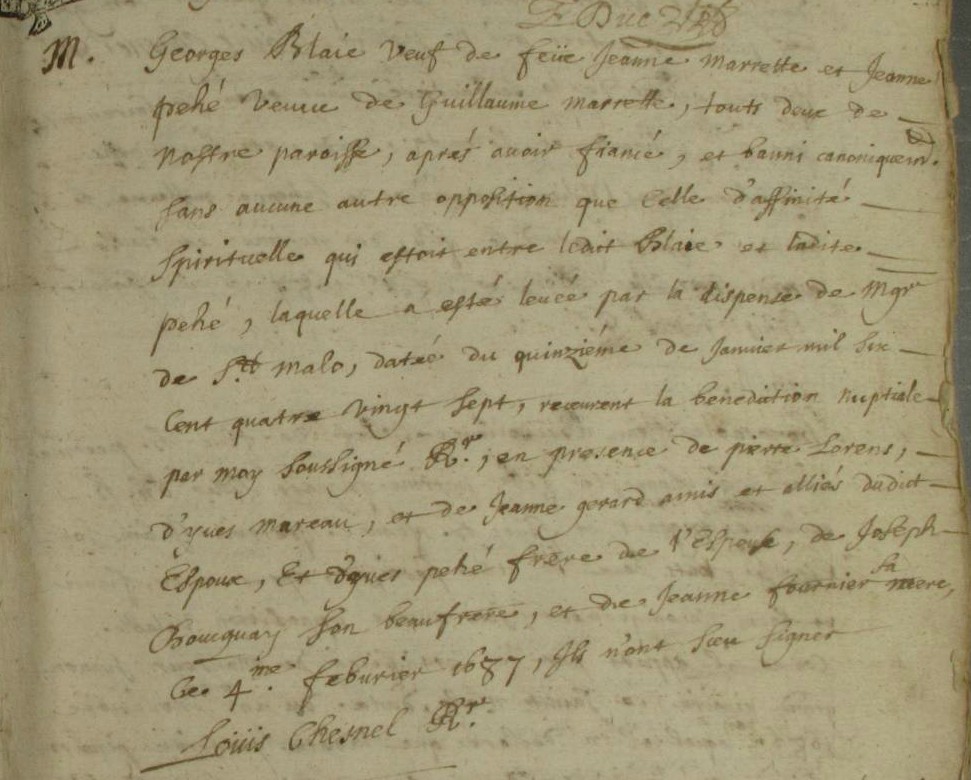 F Duc
M. Georges Blaie Veuf de feüe Jeanne marrette et Jeanne
pehé Veuve de Guillaume marrette, touts deux de
nostre paroisse, aprés avoir fiancé, et banni canoniquem.
sans aucune autre opposition que Celle d'affinité
spirituelle qui estoit entre ledit Blaie et ladite
pehé, laquelle a esté levée par la dispense de Mgr
de St malo, datée du quinziéme de Janvier mil six
Cent quatre Vingt Sept, receurent la benediction nuptiale
par moy Soussigné Rr., en presence de pierre Lorens,
d'yves mareau, et de Jeanne gerard amis et alliés dudict
Espoux, Et d'yves pehé frere de l'Espouse, de Joseph
son beaufrere, et de Jeanne fournier sa mere,
Ce. 4me. feburier 1687, Ils n'ont sceu signer
Loüis Chesnel Rr.